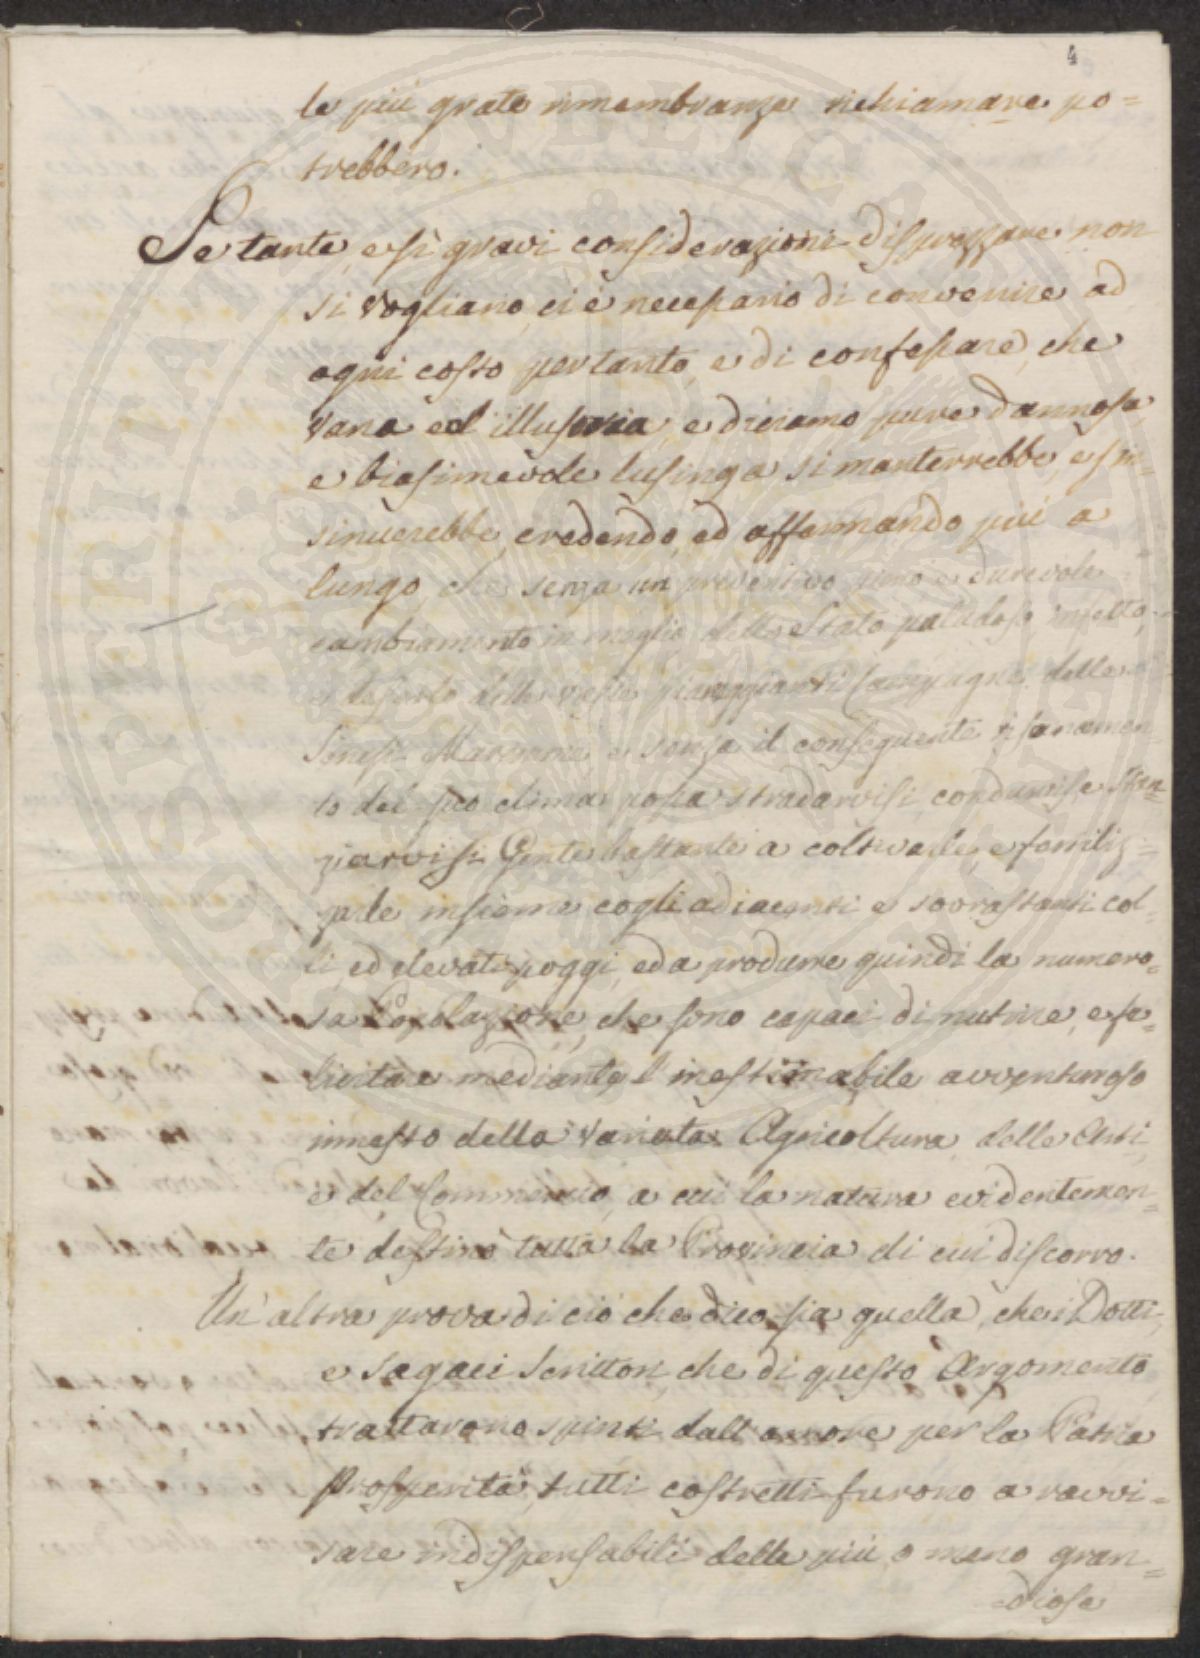 4
le più grate rimembranze richiamare po=
trebbero.
Se tante, e sì gravi considerazioni disprezzare non
si vogliano, ci è necessario di convenire ad
ogni costo pertanto, e di confessare, che
vana ed illusoria, e diciamo pure dannosa,
e biasimevole lusinga si manterrebbe, e s'in=
sinuerebbe, credendo, ed affermando più a
lungo, che senza un preventivo primo e durevole
cambiamento in meglio dello Stato paludoso infetto,
e deserto delle vaste piaggianti Campagne delle
Senesi Maremme e senza il conseguente risanamen=
to del suo clima possa stradarvisi, condurvisi, e stan=
ziarvisi Gente bastante a coltivarle, e fertiliz=
zarle insieme cogli adiacenti e sovrastanti col=
li, ed elevati poggi, ed a produrre quindi la numero=
sa Popolazione, che sono capaci di nutrire, e fe=
licitare mediante l'inestimabile avventuroso
innesto della variata Agricoltura, delle Arti,
e del Commercio, a cui la natura evidentemen=
te destinò tutta la Provincia di cui discorro.
Un'altra prova di ciò che dico sia quella, che i Dotti,
e sagaci Scrittori, che di questo Argomento
trattarono spinti dall'amore per la Patria
Prosperità, tutti costretti furono a ravvi=
sare indispensabili delle più, o meno gran=
diose